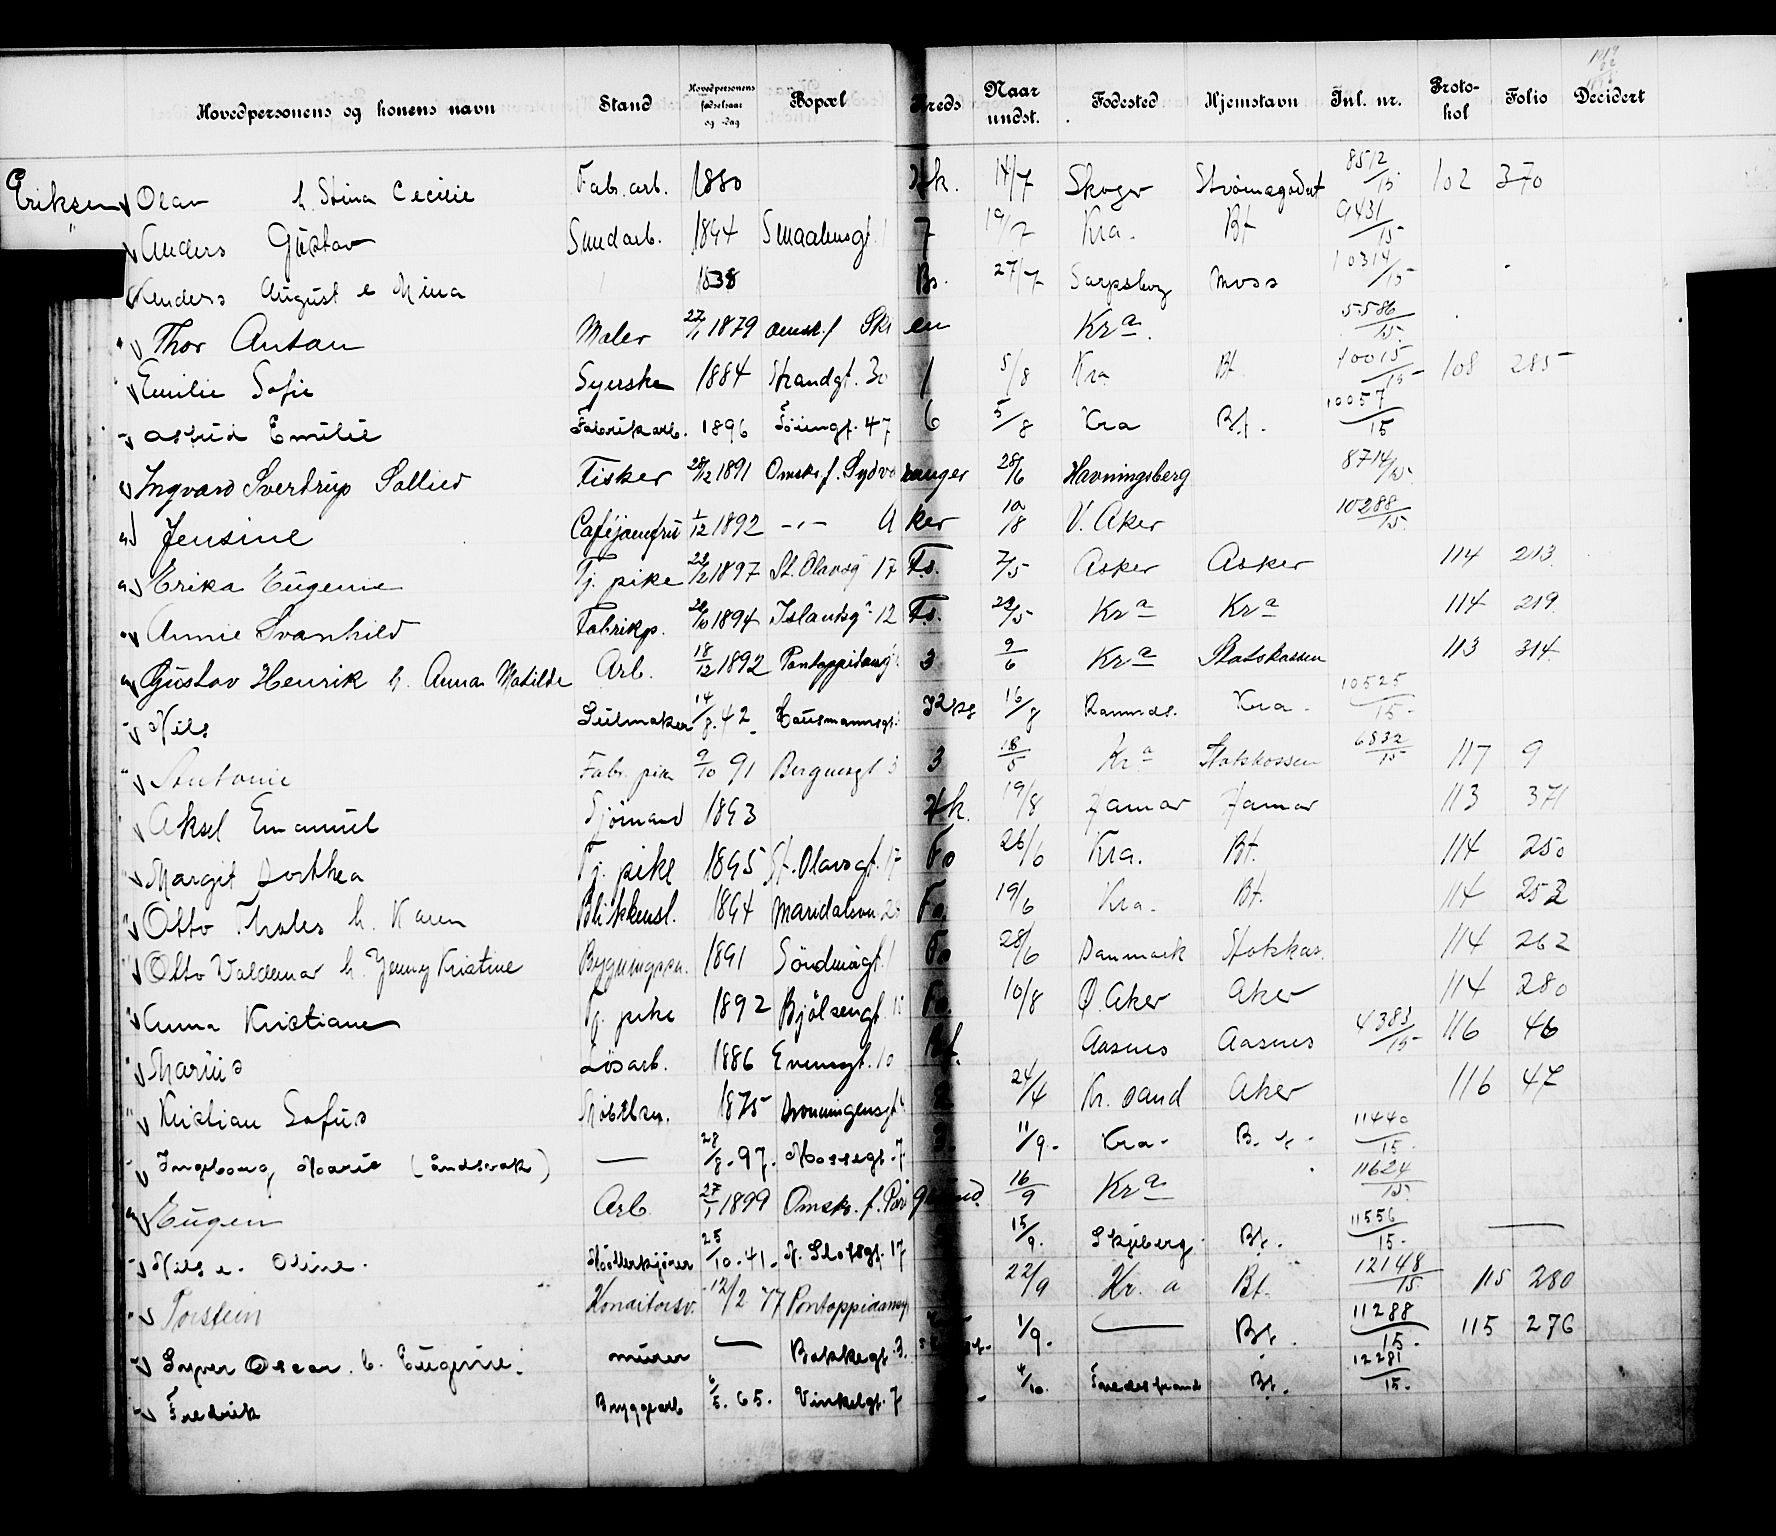 Hovedpersonens og konens navn Stand Hovedpersonens fødselsaar og -dag Bopæl Kreds Naar undst. Fødested Hjemstavn Inl. nr. Proto-kol Folio Decidert
Eriksen Olav h. Stina Cecilie Fab. arb. 1880 14/7 Skoger Strømsgodset 8512/15 102 370
" Anders Gustav Smedarb. 1894 7 19/7 Kra. Bt 9431/15
Anders August e Mina 1838 Bs. 27/7 Sarpsborg Moss 10314/15
Thor Anton Maler 1879 omsk. f Skien Kra. 5586/15
Emilie Sofie Syerske 1884 Strandgt. 30 1 5/8 Kra Bt. 10015/15 108 285
Astrid Emilie Fabrikarb. 1896 Tøiengt. 47 6 5/8 Kra Bt. 10057/15
Ingvard Svertrup Sollied Fisker 28/12 1891 Omsk. f. Sydvaranger 28/6 Havningsberg 8714/15
Jensine Caféjomfru 1/12 1892 -"- Aker 10/8 V. Aker 10288/15
Erika Eugenie Tj. pike 1897 St. Olavsg 17 Fs. 7/5 Asker Asker 114 213
Annie Svanhild Fabrikp. 1894 Islandsg. 12 Fs. Kra Kra 114 219
Gustav Henrik h. Anna Matilde Arb. 18/12 1892 3 9/6 Kra Statskassen 113 314
Nils Seilmaker 14/8. 42. Hausmannsgt. 16/8 Ramnds. Kra. 10525/15.
Antonie Fabr. pike 9/10 91 Bergensgt 3 3 18/5 Kra Statskassen 6832/15 117 9
Aksel Emanuel Sjømand 1893 19/8 Hamar Hamar 113 371
Margit Dorthea Tj. pike 1895 St. Olavsgt. 17 Fo 26/6 Kra. Bt. 114 250
Otto Thales h. Karen Blikkensl. 1894 Fo. 19/6 Kra. Bt. 114 252
Otto Valdemar h. Jenny Kristine 1891 Fo 28/6 Danmark Statskas. 114 262
Anna Kristiane Tj. pike 1892 Bjølsengt. Fo. 10/8 Ø. Aker Aker 114 280
Marius Løsarb. 1886 Evensgt. 10 Aasnes Aasnes 4383/15 116 46
Kristian Sofus Møbelsn. 1875 Dronningensgt. 24/4 Kr. sand Aker 116 47
Ingeborg Marie (åndsvak) — 28/8. 97. Mossegt. 7 11/9. Kra. Bt. 11440/15.
Eugen Arb. 27/1 1899 Omsk. f. Porsgrund. 16/9 Kra 11624/15
Nils e. Oline. Møllerkjører 25/10. 41. N. Slotsgt. 17 15/9. Skjeberg. Bt. 11556/15. —
Torstein Konditorsv. 12/2 77 22/9 Kr. a Bt. 12148/15 115 280
Oscar h. Eugenie. murer — Bakkegt. 3. 1/9. — Bt. 11288/15. 115 276
Fredrik Bryggearb 6/5. 65. Vinkelgt. 7 4/10. Bt. 12281/15.